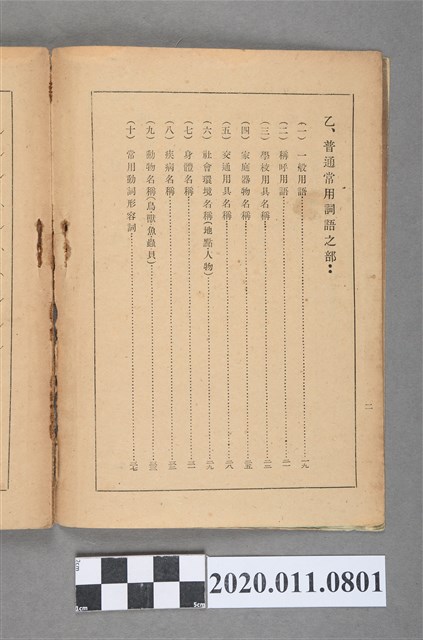 乙、普通常用詞語之部：
(一) 一般用語……一九
(二) 稱呼用語……二一
(三) 學校用具名稱……二三
(四) 家庭器物名稱……二五
(五) 交通用具名稱……二八
(六) 社會環境名稱(地點人物)……二九
(七) 身體名稱……三一
(八) 疾病名稱……三三
(九) 動物名稱(鳥獸魚蟲貝)……三五
(十) 常用動詞形容詞……三七
二
2cm
1cm
5cm
2020.011.0801